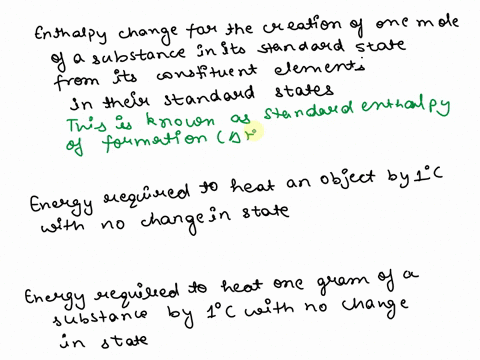 Enthalpy change for the creation of one mole
of a substance in its standard state
from its constituent elements
in their standard states
This is known as standard enthalpy
of formation (
Energy required to heat an object by 1°C
with no change in state
Energy required to heat one gram of a
substance by 1°C with no change
in state